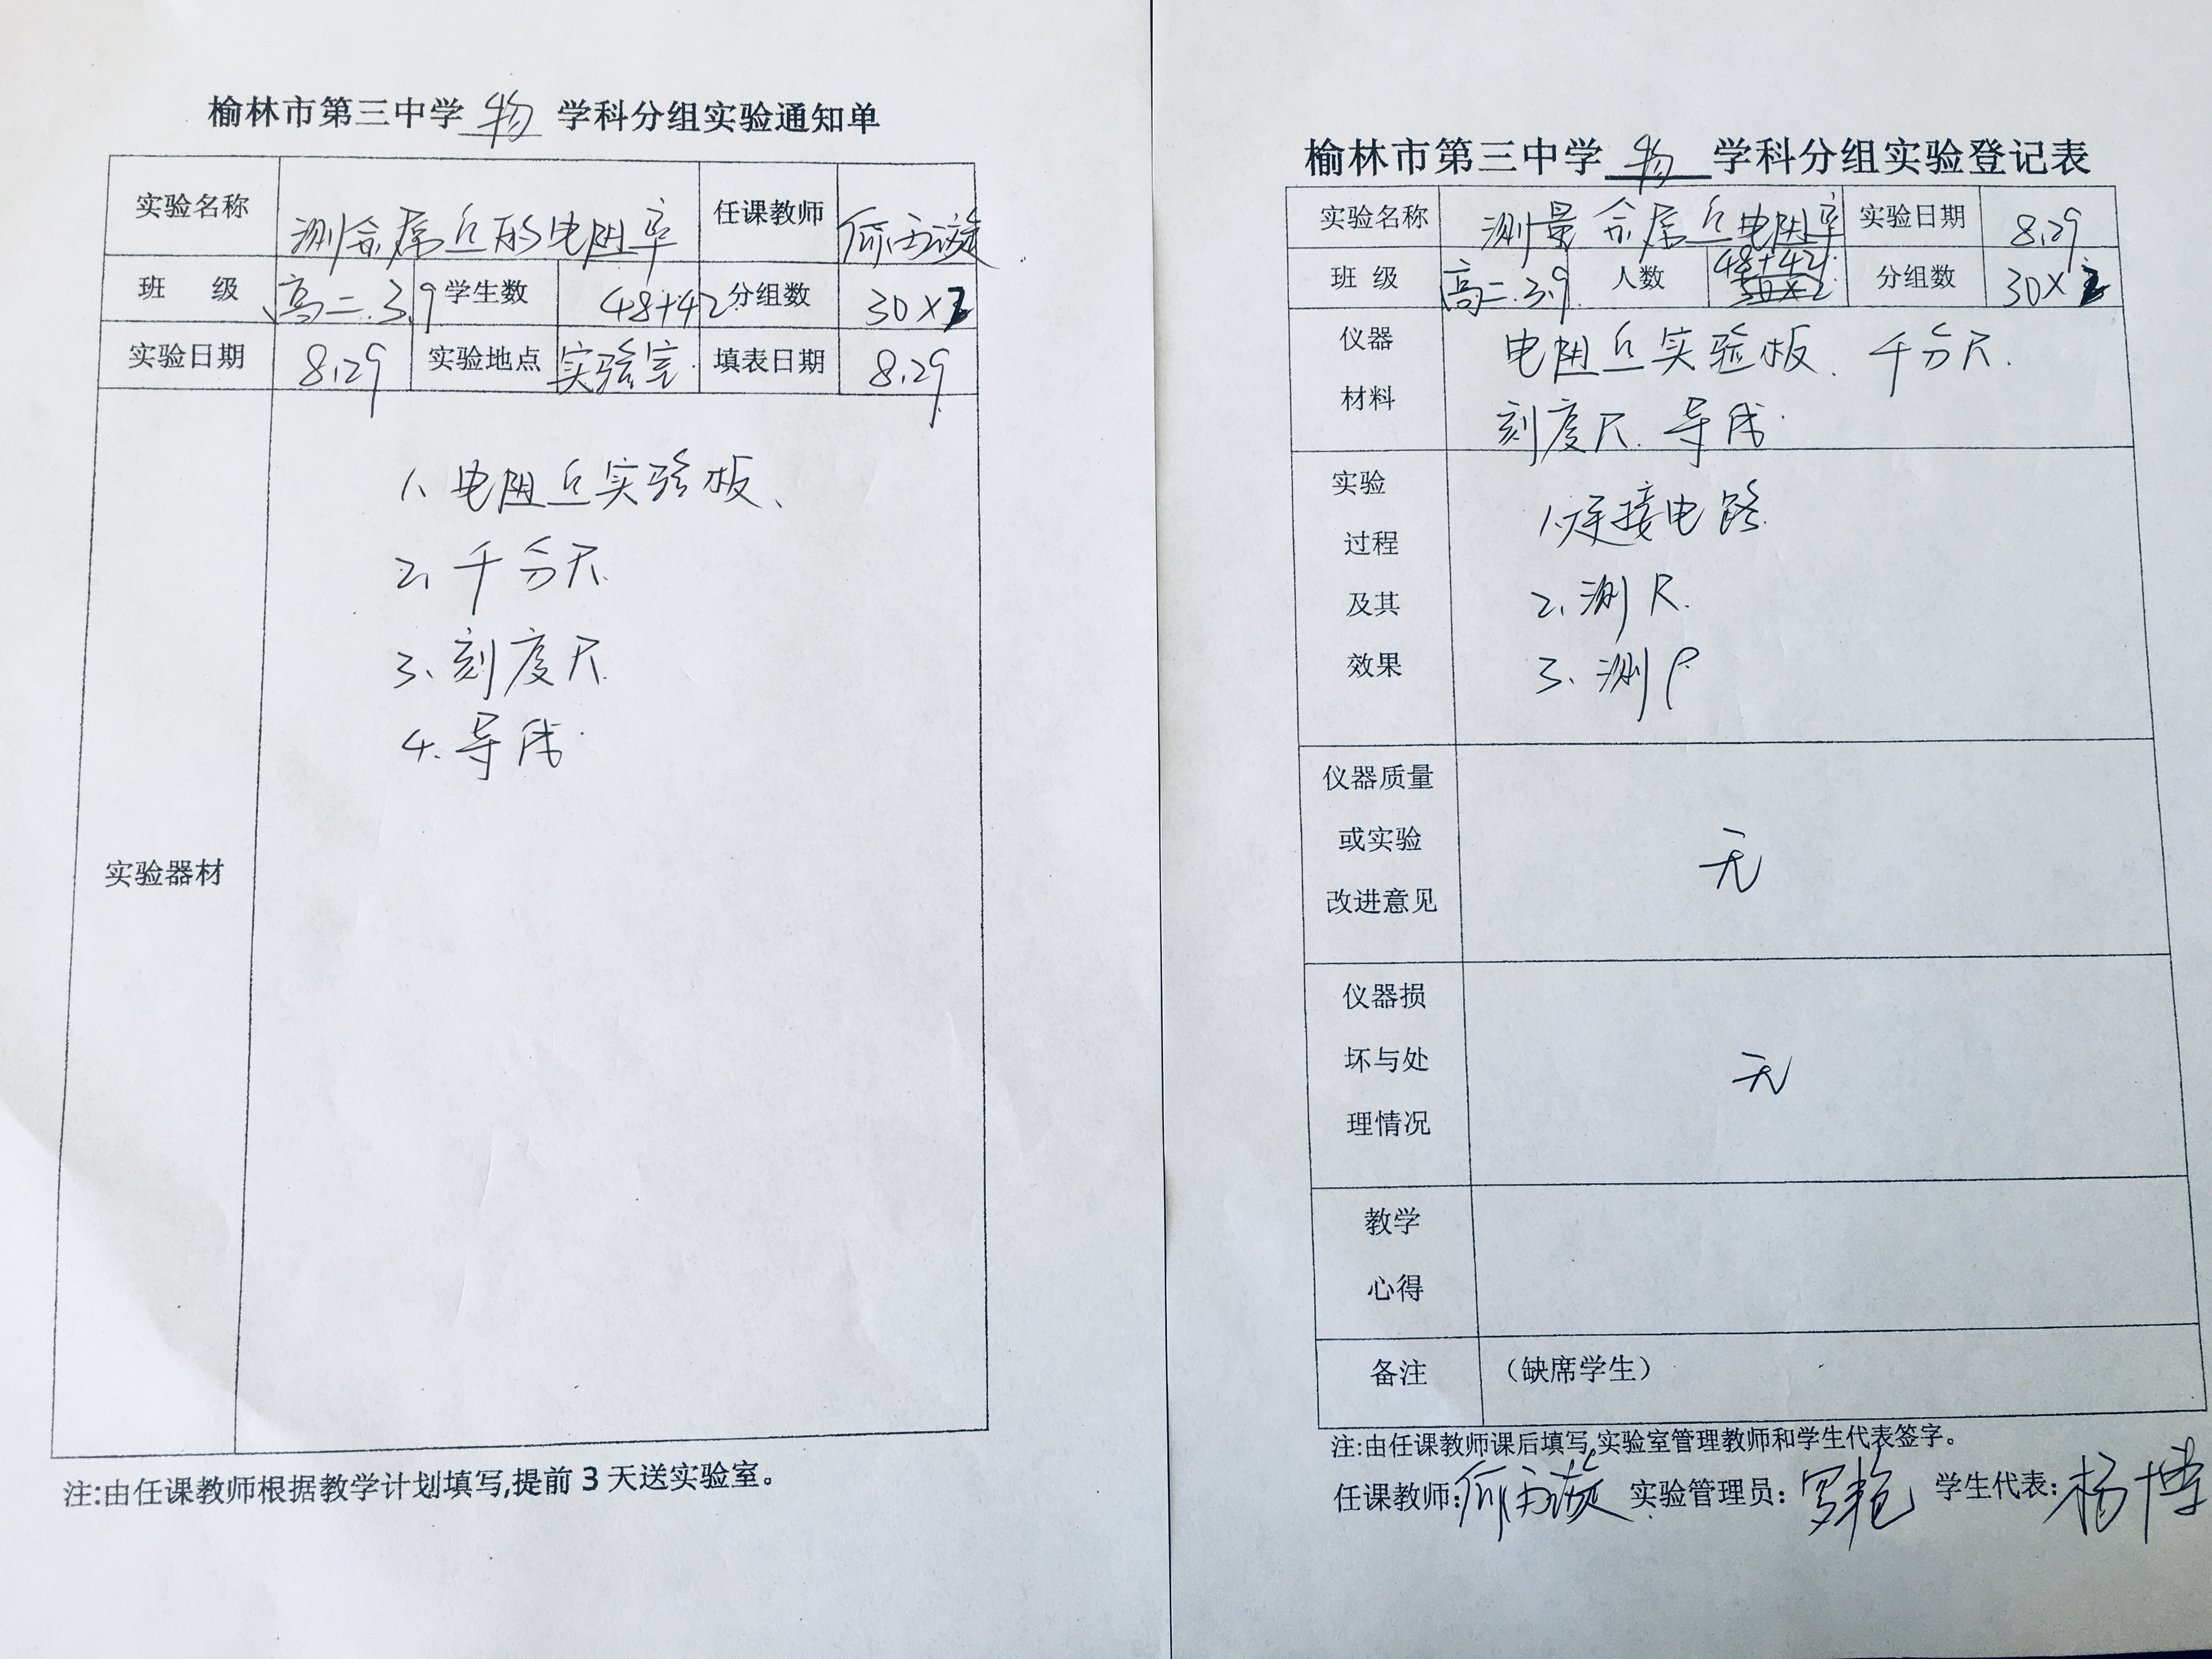 榆林市第三中学 物 学科分组实验通知单
实验名称 测金属丝的电阻率 任课教师
班 级 高二.3.9 学生数 48+42 分组数 30×2
实验日期 8.29 实验地点 实验室 填表日期 8.29
实验器材
1、电阻丝实验板、
2、千分尺.
3、刻度尺.
4.导线.
注:由任课教师根据教学计划填写,提前3天送实验室。
榆林市第三中学 物 学科分组实验登记表
实验名称 测量金属丝电阻率 实验日期 8.29
班 级 高二.3.9. 人数 48+42 分组数 30×2
仪器材料
电阻丝实验板、千分尺.
刻度尺.导线.
实验过程及其效果
1.连接电路
2.测R.
3、测ρ
仪器质量或实验改进意见 无
仪器损坏与处理情况 无
教学心得
备注 (缺席学生)
注:由任课教师课后填写,实验室管理教师和学生代表签字。
任课教师: 实验管理员: 罗艳 学生代表: 杨博